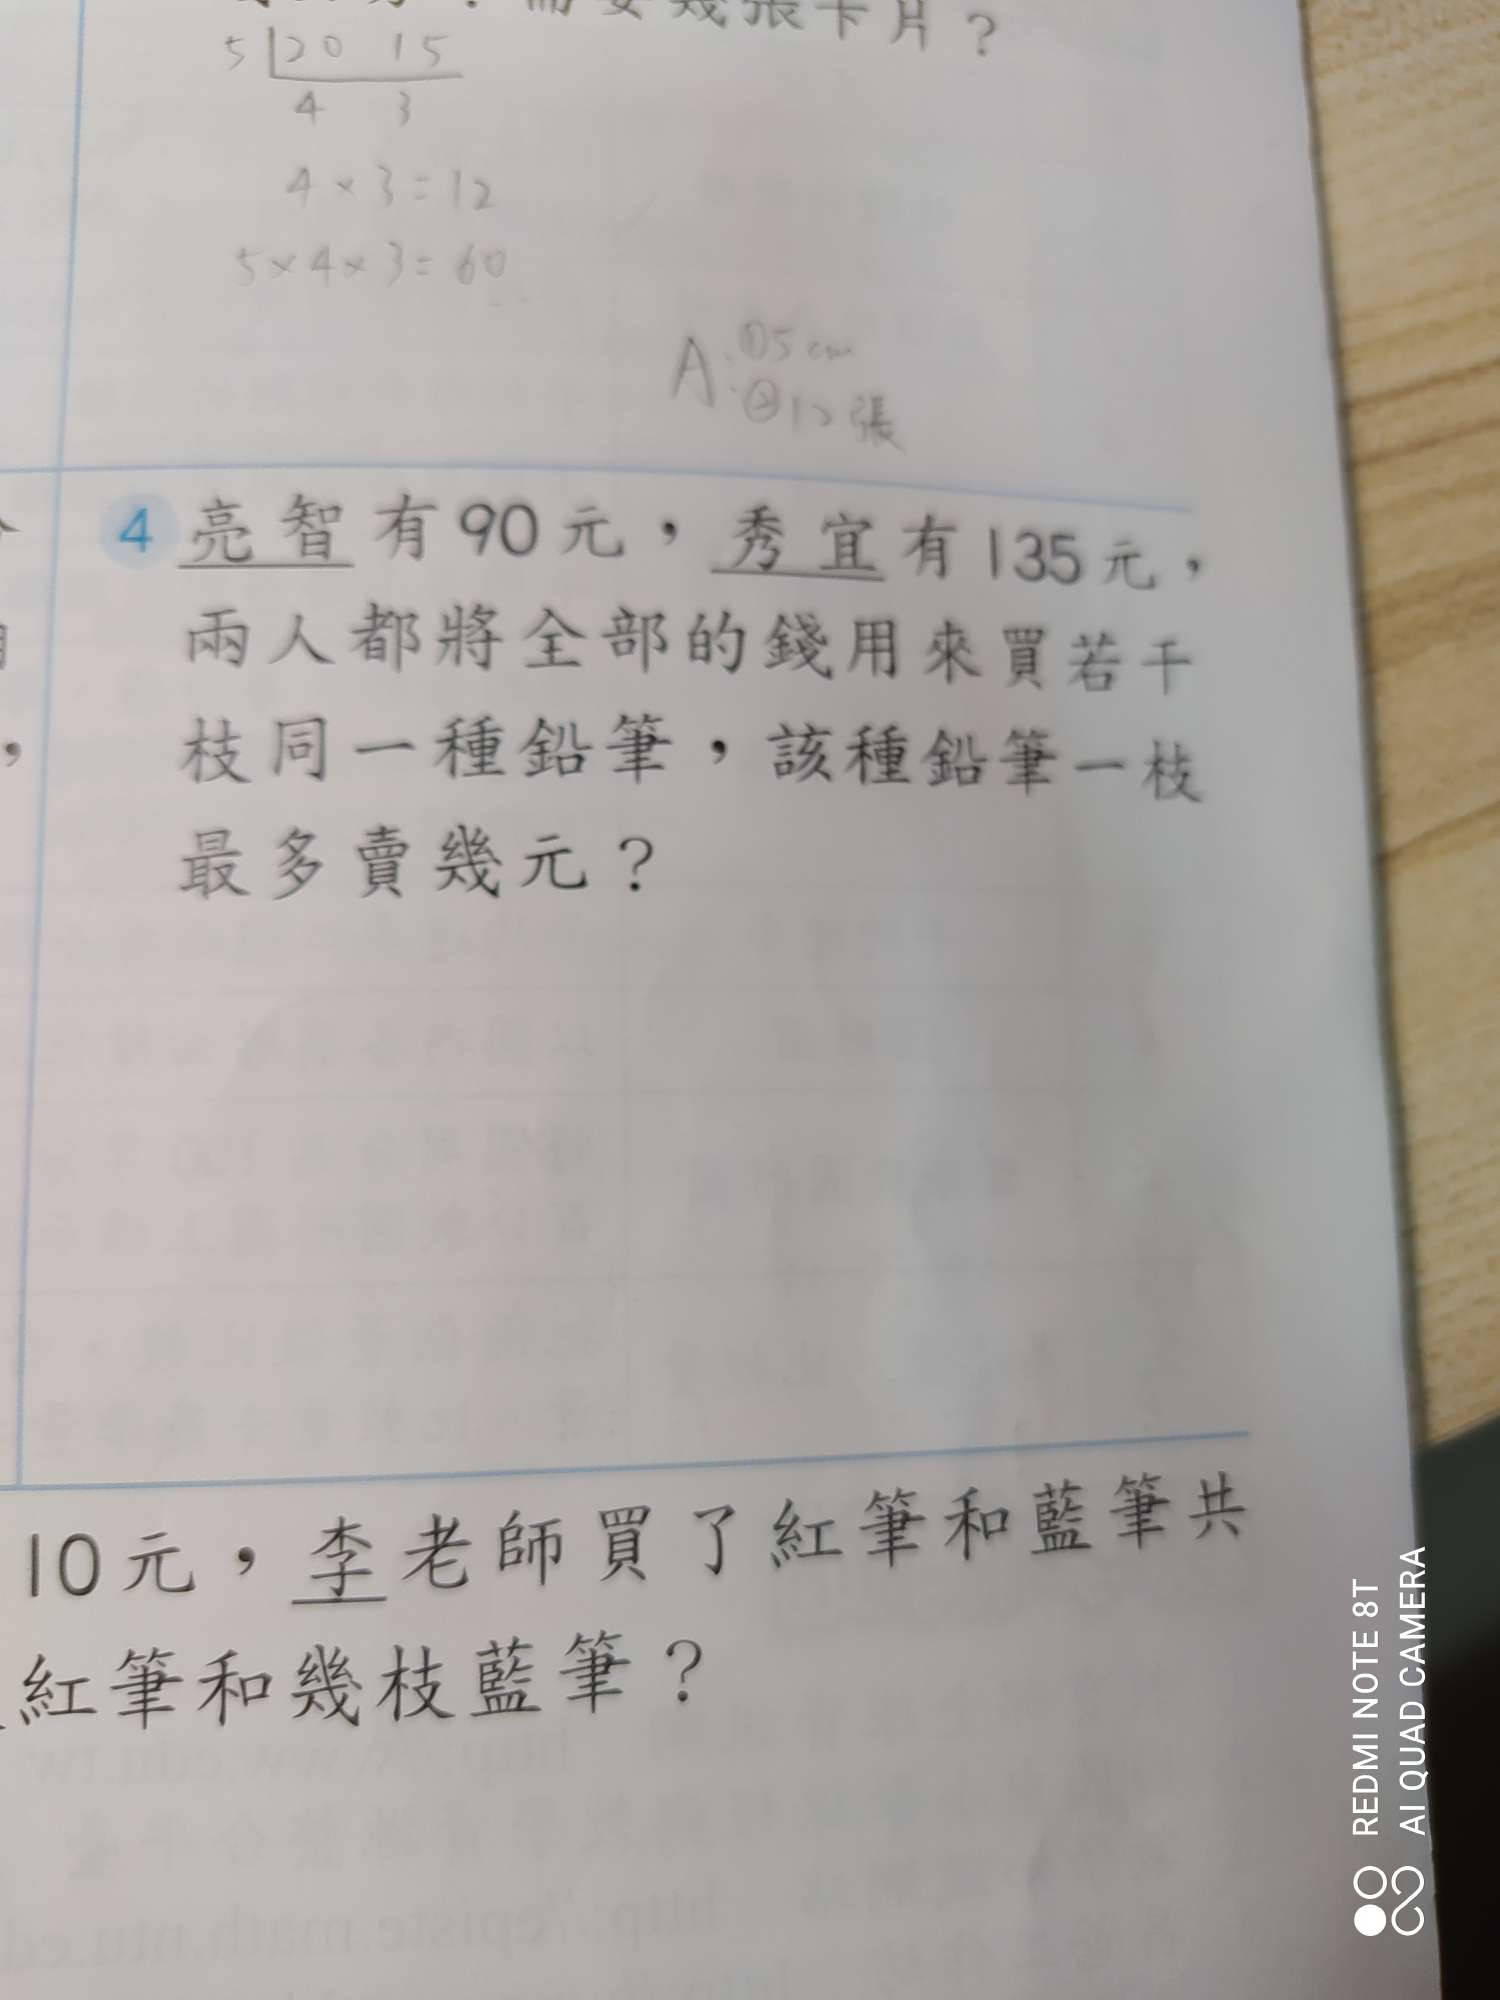 需要幾張卡片？
5 20 15
4 3
4×3=12
5×4×3=60
A:①5cm
②12張
4 亮智有90元，秀宜有135元，
兩人都將全部的錢用來買若干
枝同一種鉛筆，該種鉛筆一枝
最多賣幾元？
10元，李老師買了紅筆和藍筆共
紅筆和幾枝藍筆？
REDMI NOTE 8T
AI QUAD CAMERA